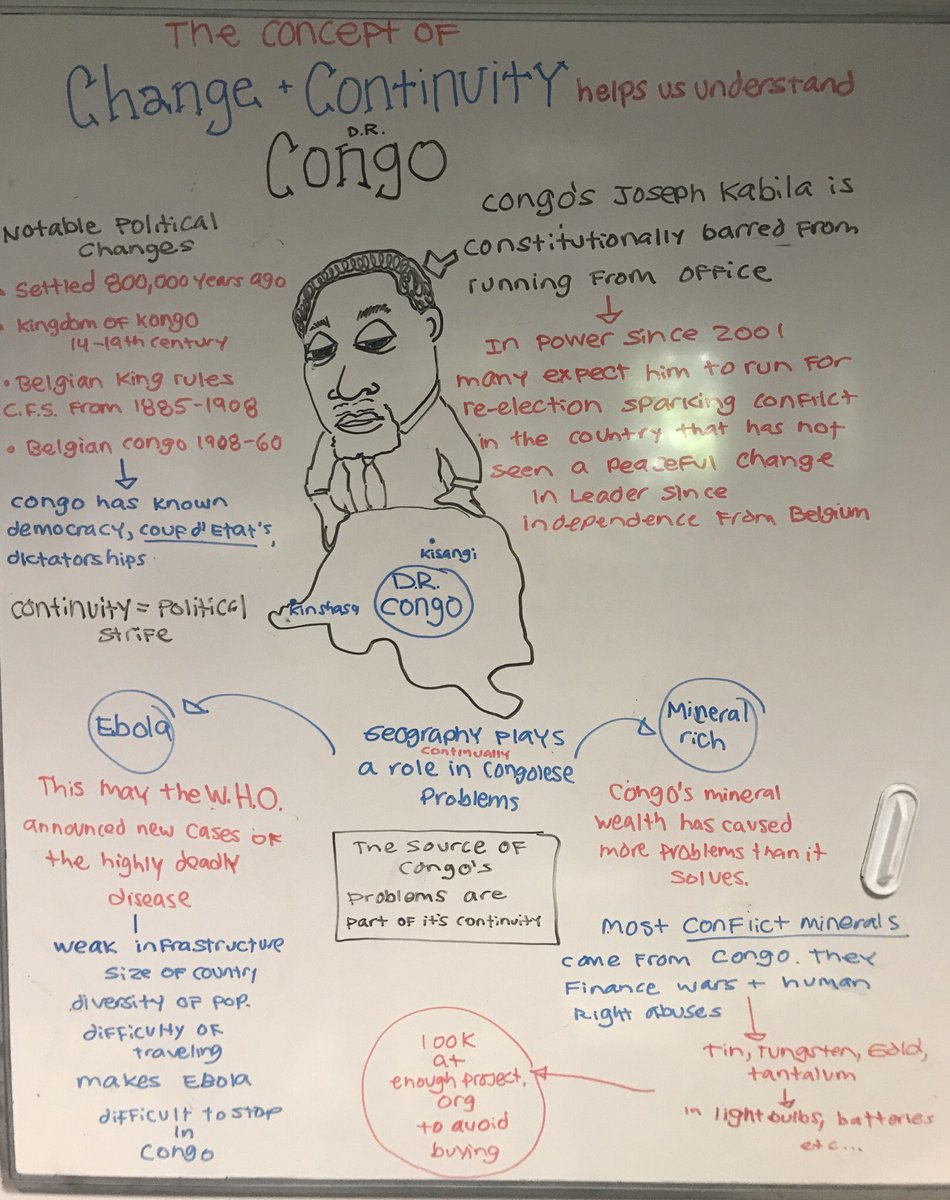 The concept of
Change + Continuity helps us understand
D.R.
Congo
Notable Political
Changes
• Settled 800,000 years ago
• Kingdom of Kongo
14-19th century
• Belgian King rules
C.F.S. from 1885-1908
• Belgian Congo 1908-60
Congo has known
democracy, coup d'Etat's,
dictatorships
Continuity = Political
Strife
Congo's Joseph Kabila is
constitutionally barred from
running from office
In power since 2001
many expect him to run for
re-election sparking conflict
in the country that has not
seen a peaceful change
in leader since
independence from Belgium
Kisangi
D.R.
Congo
Kinshasa
Geography plays
continually
a role in Congolese
Problems
Ebola
This may the W.H.O.
announced new cases of
the highly deadly
disease
weak infrastructure
size of country
diversity of pop.
difficulty of
traveling
makes Ebola
difficult to stop
in
Congo
The source of
Congo's
problems are
part of it's continuity
Mineral
rich
Congo's mineral
wealth has caused
more problems than it
solves.
Most conflict minerals
come from Congo. They
Finance wars + human
Right abuses
Tin, Tungsten, Gold,
tantalum
in lightbulbs, batteries
etc...
look
at
enough project.
org
to avoid
buying